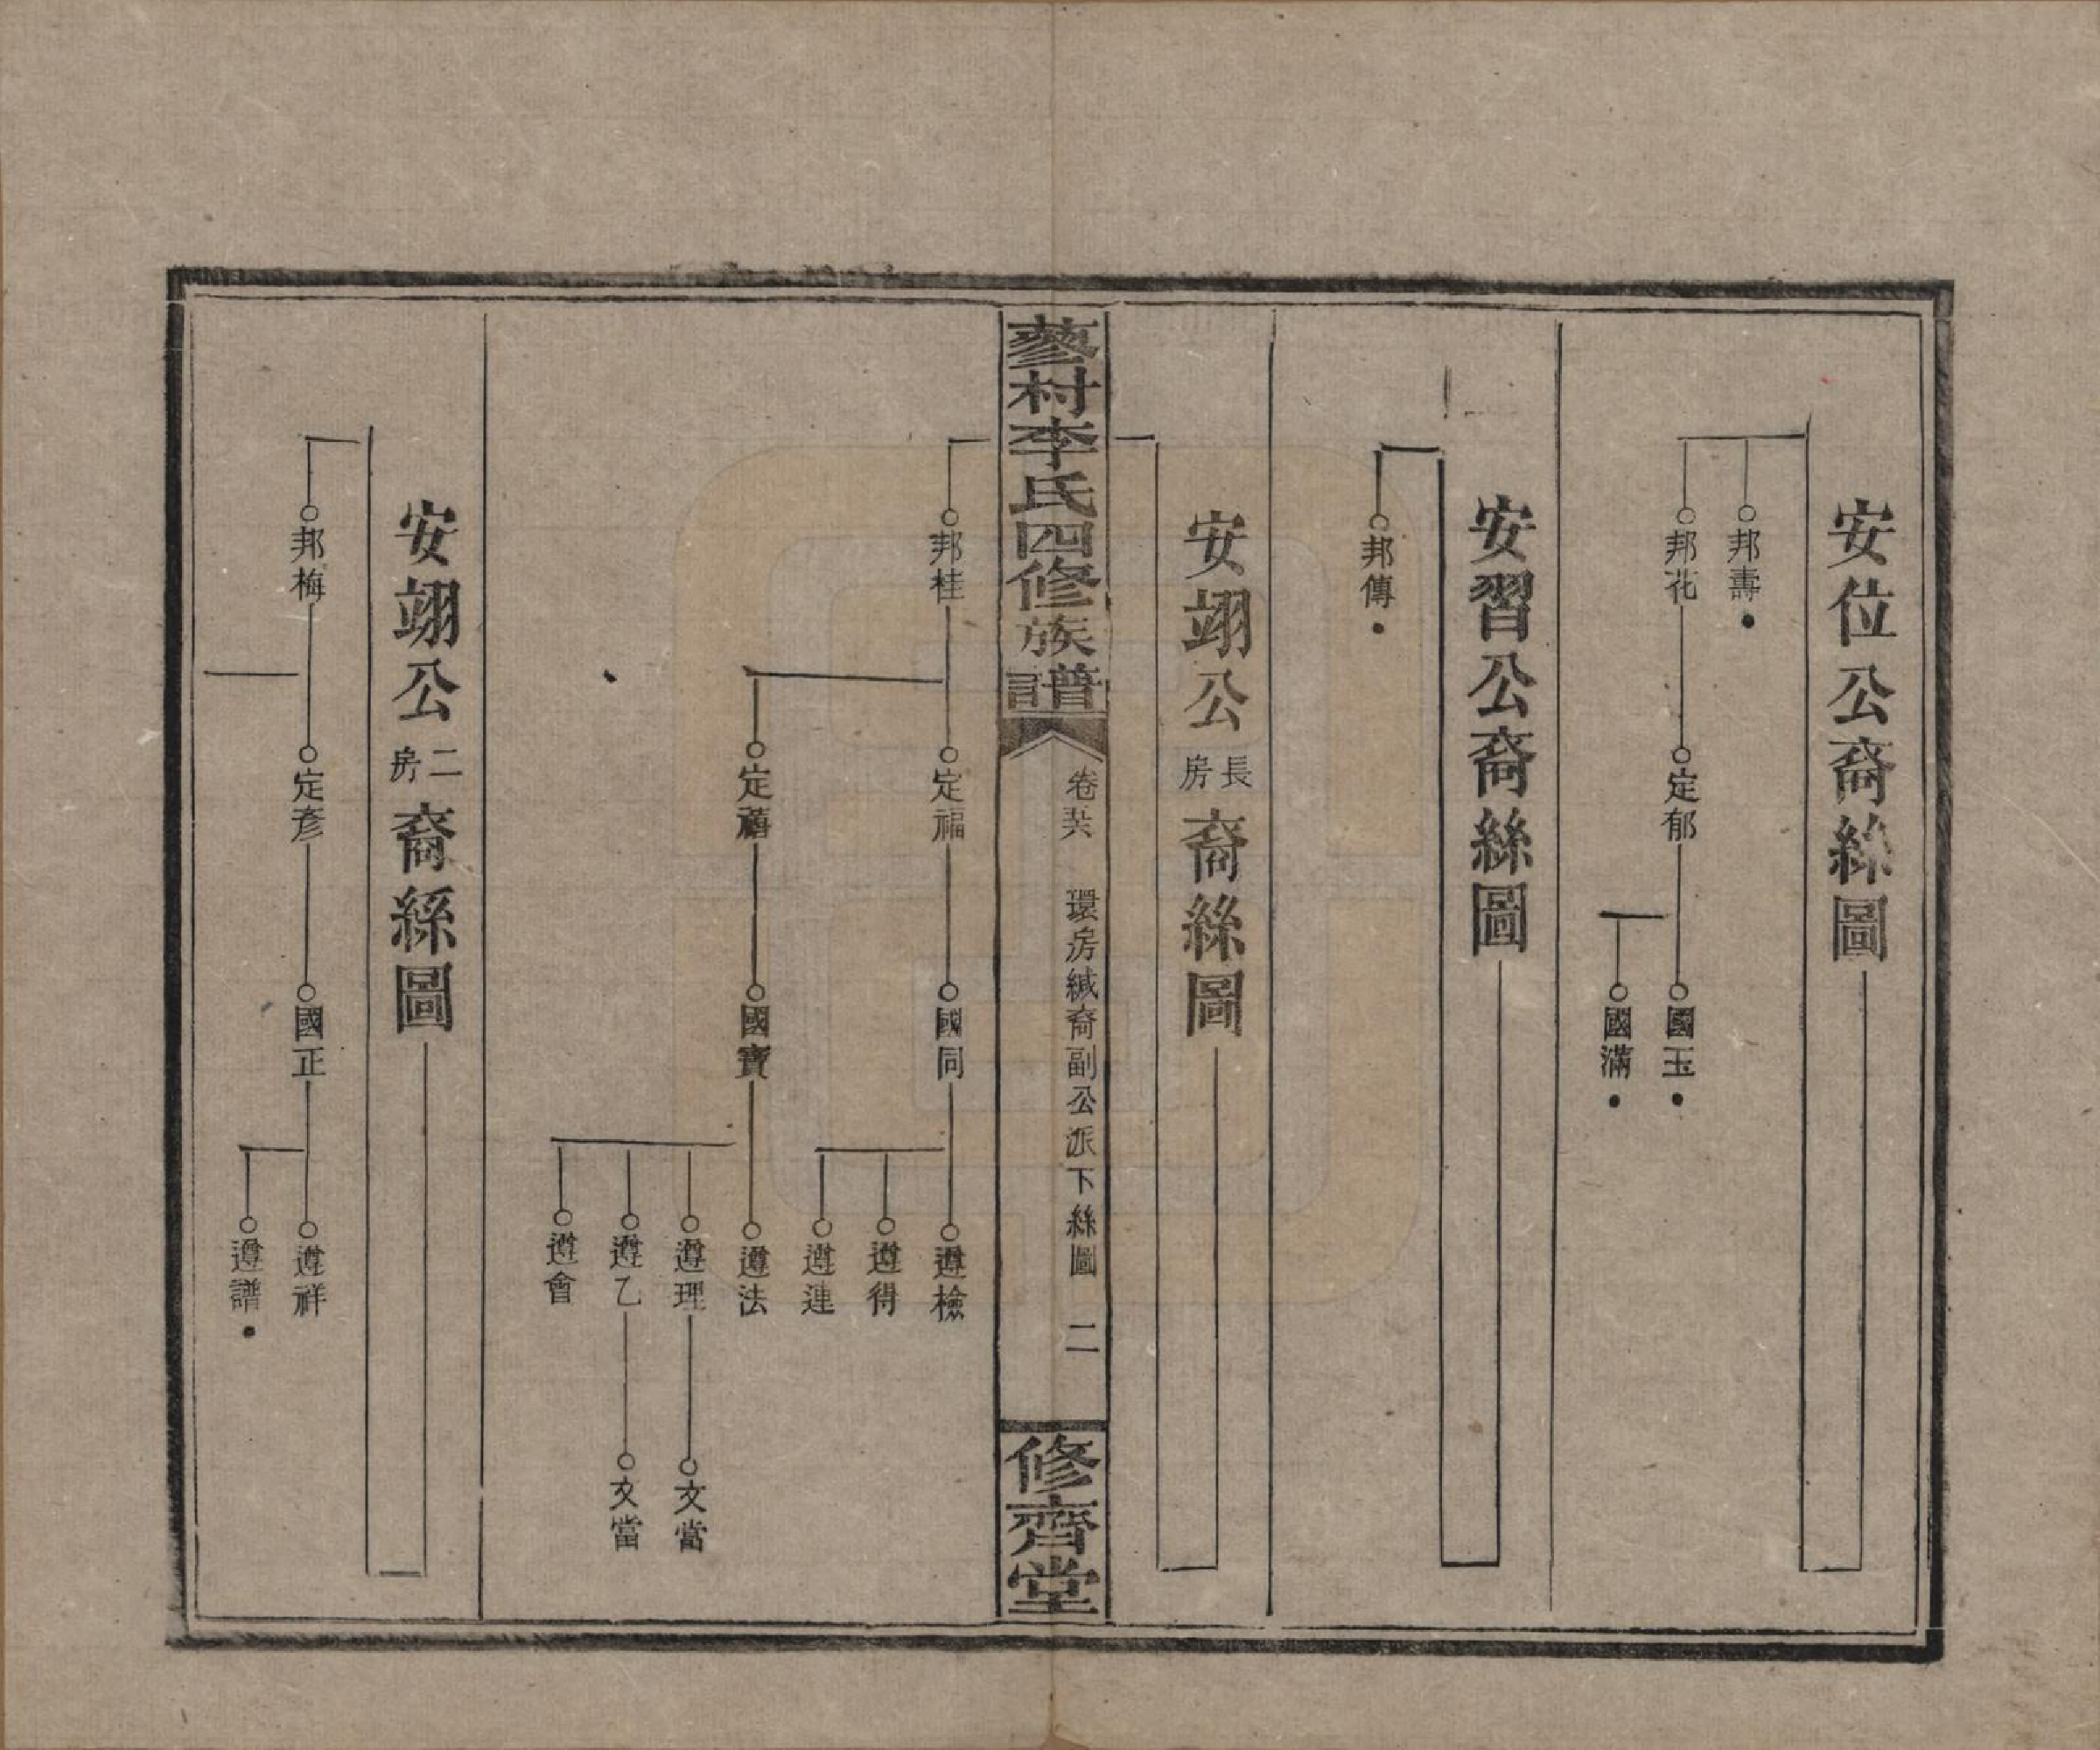 安位公裔絲圖
邦壽
邦花
定郁
國玉
國滿
安習公裔絲圖
邦傳
安翊公長房裔絲圖
蓼村李氏四修族譜
卷 環房緘裔副公派下絲圖 二
修齊堂
邦桂
定福
國同
遵檢
遵得
遵連
定禧
國寶
遵法
遵理
文當
遵乙
文當
遵會
安翊公二房裔絲圖
邦梅
定彥
國正
遵祥
遵譜